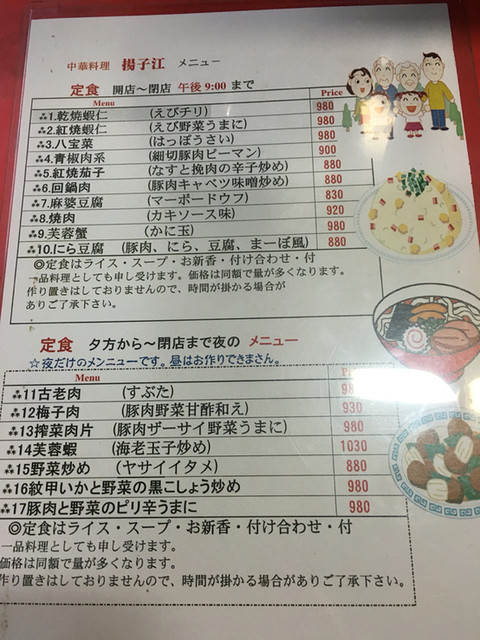 中華料理 揚子江 メニュー
定食 開店～閉店 午後9:00 まで
Menu Price
⁂1.乾焼蝦仁 (えびチリ) 980
⁂2.紅焼蝦仁 (えび野菜うまに) 980
⁂3.八宝菜 (はっぽうさい) 980
⁂4.青椒肉系 (細切豚肉ピーマン) 900
⁂5.紅焼茄子 (なすと挽肉の辛子炒め) 880
⁂6.回鍋肉 (豚肉キャベツ味噌炒め) 880
⁂7.麻婆豆腐 (マーボードウフ) 830
⁂8.焼肉 (カキソース味) 920
⁂9.芙蓉蟹 (かに玉) 980
⁂10.にら豆腐 (豚肉、にら、豆腐、まーぼ風) 880
◎定食はライス・スープ・お新香・付け合わせ・付
一品料理としても申し受けます。価格は同額で量が多くなります。
作り置きはしておりませんので、時間が掛かる場合が
ありご了承下さい。
定食 夕方から～閉店まで夜の メニュー
☆夜だけのメンニューです。昼はお作りできまさん。
Menu
⁂11古老肉 (すぶた)
⁂12梅子肉 (豚肉野菜甘酢和え) 930
⁂13搾菜肉片 (豚肉ザーサイ野菜うまに) 980
⁂14芙蓉蝦 (海老玉子炒め) 1030
⁂15野菜炒め (ヤサイイタメ) 880
⁂16紋甲いかと野菜の黒こしょう炒め 980
⁂17豚肉と野菜のピリ辛うまに 980
◎定食はライス・スープ・お新香・付け合わせ・付
一品料理としても申し受けます。
価格は同額で量が多くなります。
作り置きはしておりませんので、時間が掛かる場合がありご了承下さい。